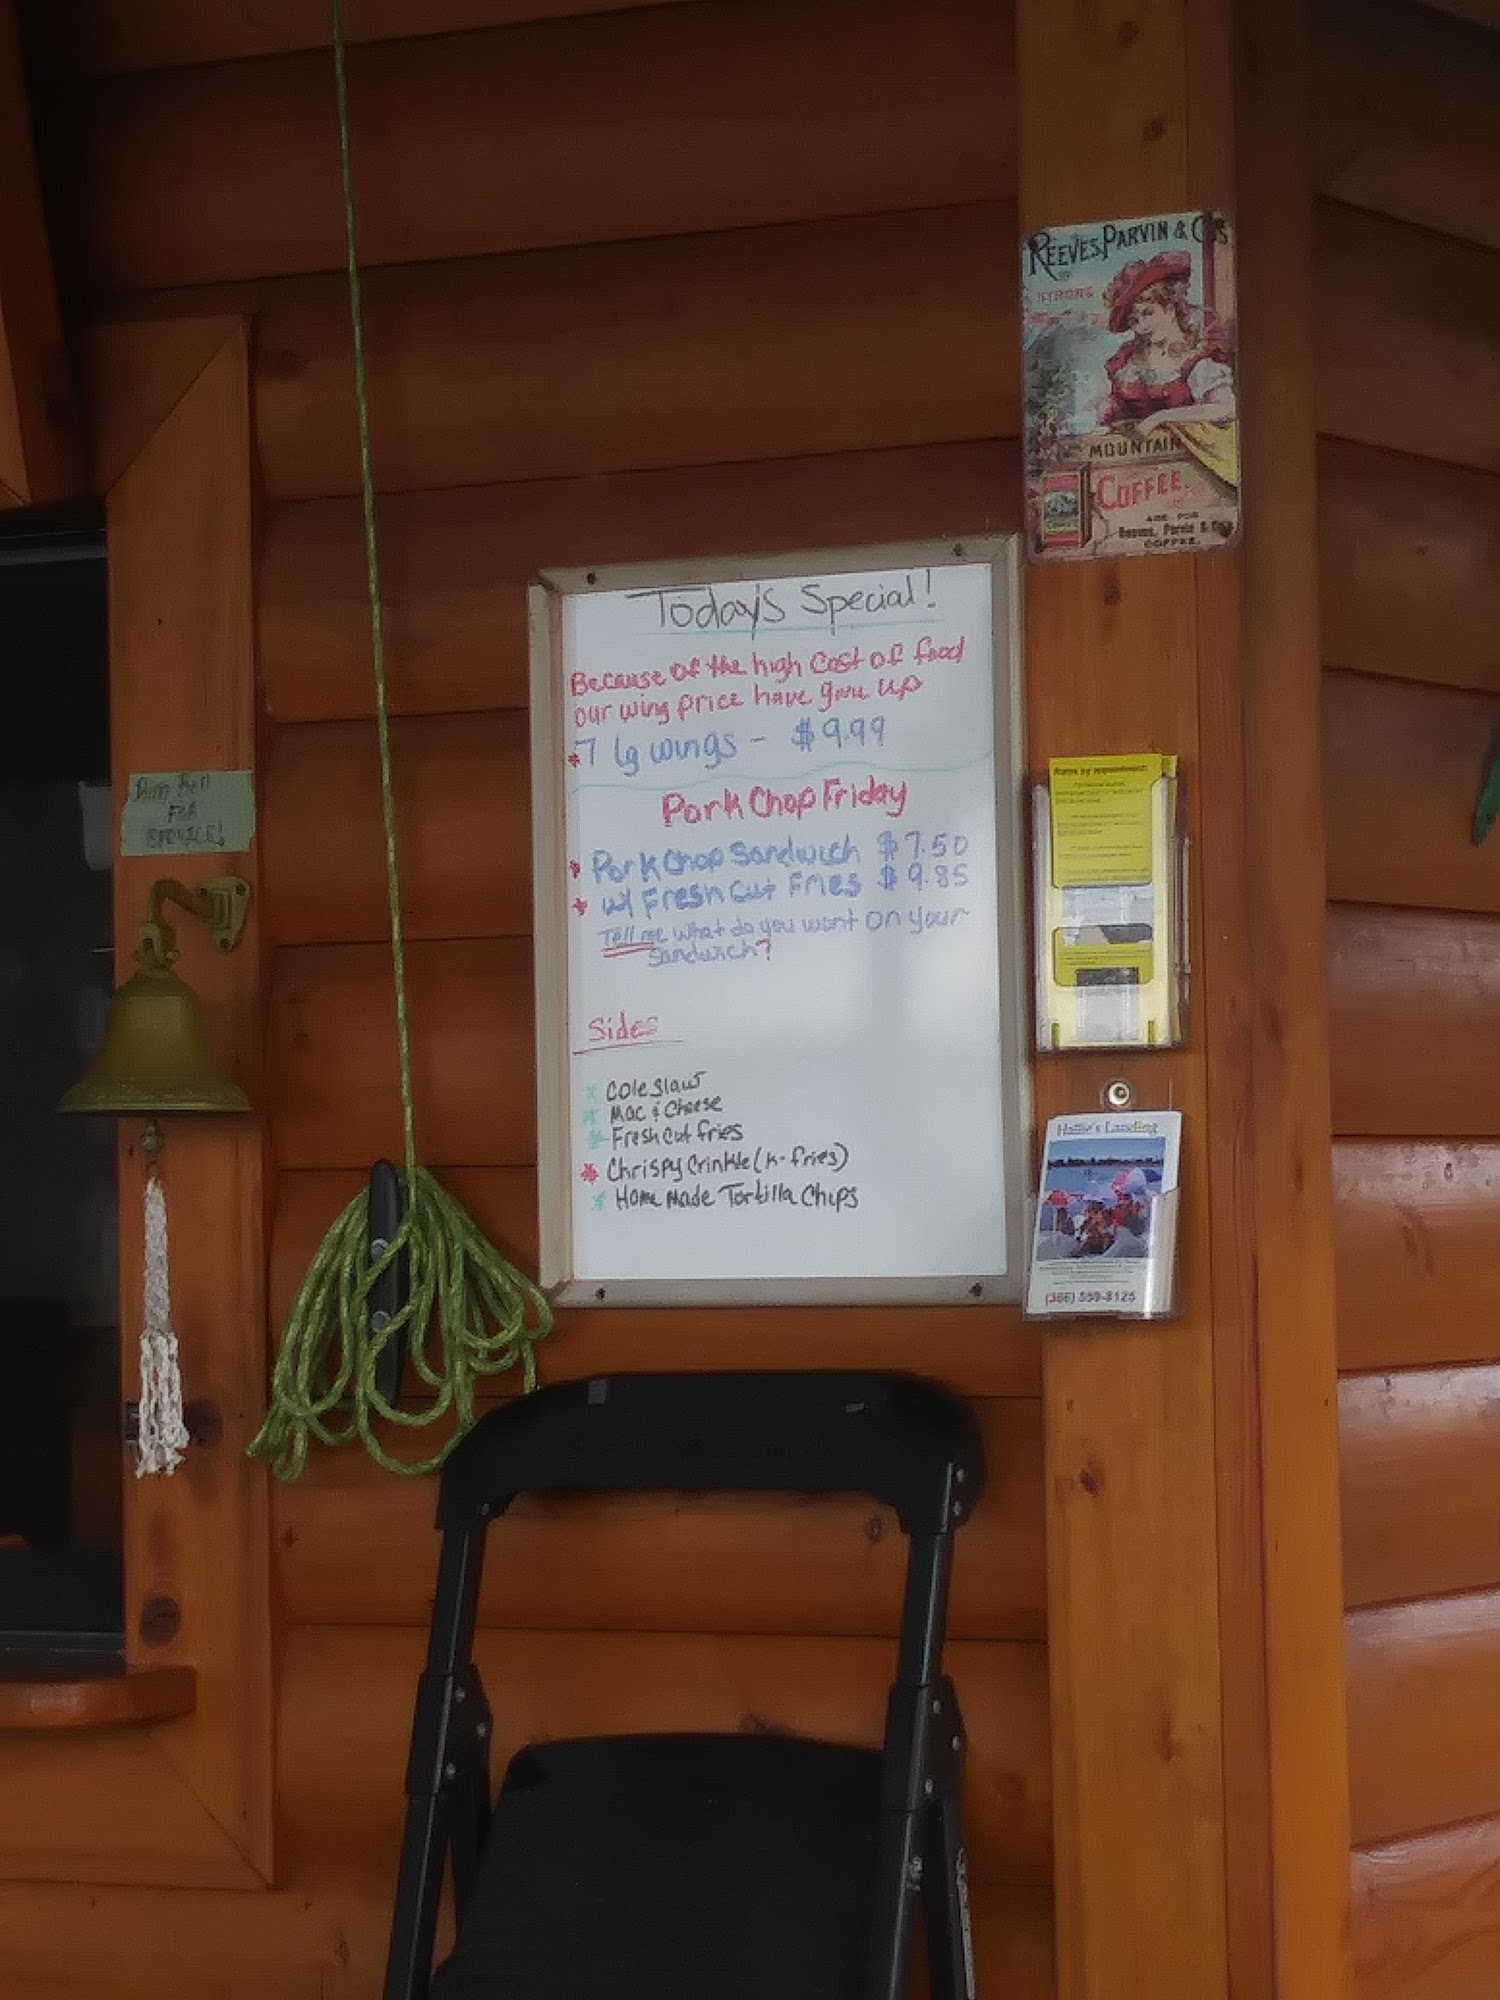 REEVES, PARVIN & CO'S
STRONG
MOUNTAIN
COFFEE.
ASK FOR
Reeves, Parvin & Co's
COFFEE.
Today's Special!
Because of the high cost of food
our wing price have gone up
* 7 lg wings - $9.99
Pork Chop Friday
* Pork Chop Sandwich $7.50
* w/ Fresh Cut Fries $9.85
Tell me what do you want on your
sandwich?
Sides
* Coleslaw
* Mac & Cheese
* Fresh Cut fries
* Chrispy Crinkle (k-fries)
* Home Made Tortilla Chips
Ring bell
FOR
SERVICE!
Rates by appointment:
Hattie's Landing
(386) 559-8125